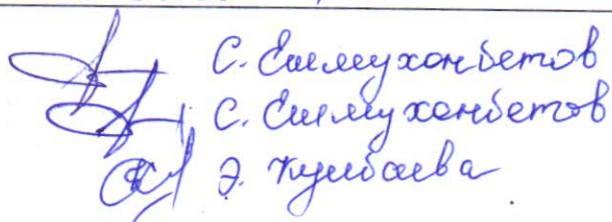 С. Ешмуханбетов
С. Ешмуханбетов
Э. Кулбаева